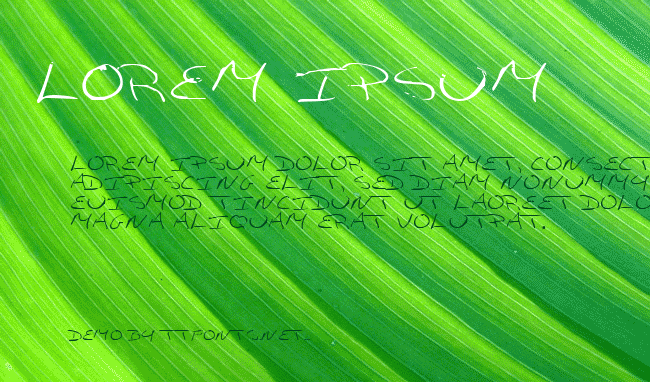 LOREM IPSUM
LOREM IPSUM DOLOR SIT AMET, CONSECT
ADIPISCING ELIT, SED DIAM NONUMMY
EUISMOD TINCIDUNT UT LAOREET DOLO
MAGNA ALIQUAM ERAT VOLUTPAT.
DEMO BY TTFONTS.NET